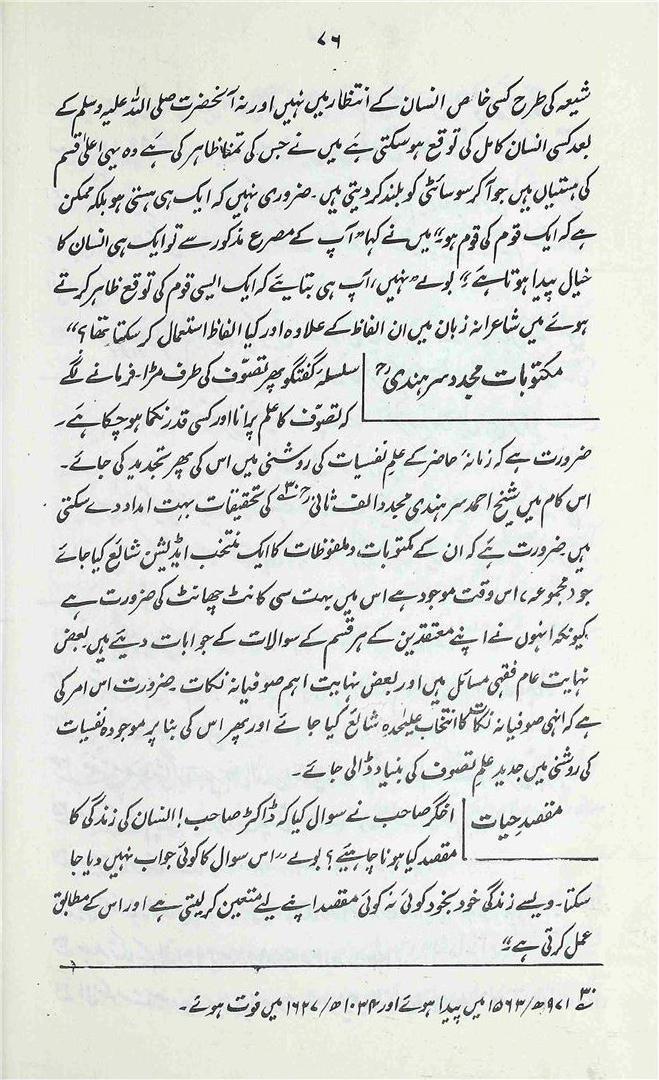 ۷۶
شیعہ کی طرح کسی خاص انسان کے انتظار میں نہیں اور نہ آنحضرت صلی اللہ علیہ وسلم کے
بعد کسی انسان کامل کی توقع ہو سکتی ہے میں نے جس کی تمنا ظاہر کی ہے وہ یہی اعلیٰ قسم
کی ہستیاں ہیں جو آ کر سوسائٹی کو بلند کر دیتی ہیں۔ ضروری نہیں کہ ایک ہی ہستی ہو بلکہ ممکن
ہے کہ ایک قوم کی قوم ہو۔“ میں نے کہا ”آپ کے مصرع مذکور سے تو ایک ہی انسان کا
خیال پیدا ہوتا ہے؟“ بولے ”نہیں، آپ ہی بتایئے کہ ایک ایسی قوم کی توقع ظاہر کرتے
ہوئے میں شاعرانہ زبان میں ان الفاظ کے علاوہ اور کیا الفاظ استعمال کر سکتا تھا؟“
مکتوبات مجدد سرہندیؒ
سلسلہ گفتگو پھر تصوّف کی طرف مڑا۔ فرمانے لگے
کہ تصوّف کا علم پرانا اور کسی قدر نکما ہو چکا ہے۔
ضرورت ہے کہ زمانہ حاضر کے علمِ نفسیات کی روشنی میں اس کی پھر تجدید کی جائے۔
اس کام میں شیخ احمد سرہندی مجدد الف ثانیؒ ۳۰ کی تحقیقات بہت امداد دے سکتی
ہیں۔ ضرورت ہے کہ ان کے مکتوبات و ملفوظات کا ایک منتخب ایڈیشن شائع کیا جائے
جو مجموعہ، اس وقت موجود ہے اس میں بہت سی کانٹ چھانٹ کی ضرورت ہے
کیونکہ انہوں نے اپنے معتقدین کے ہر قسم کے سوالات کے جوابات دیئے ہیں بعض
نہایت عام فقہی مسائل ہیں اور بعض نہایت اہم صوفیانہ نکات۔ ضرورت اس امر کی
ہے کہ انہی صوفیانہ نکات کا انتخاب علیٰحدہ شائع کیا جائے اور پھر اس کی بنا پر موجودہ نفسیات
کی روشنی میں جدید علمِ تصوف کی بنیاد ڈالی جائے۔
مقصدِ حیات
اخگر صاحب نے سوال کیا کہ ڈاکٹر صاحب! انسان کی زندگی کا
مقصد کیا ہونا چاہیئے؟ بولے ”اس سوال کا کوئی جواب نہیں دیا جا
سکتا۔ ویسے زندگی خود بخود کوئی نہ کوئی مقصد اپنے لیے متعین کر لیتی ہے اور اس کے مطابق
عمل کرتی ہے“
۳۰ ۹۷۱ھ/۱۵۶۳ میں پیدا ہوئے اور ۱۰۳۴ھ/۱۶۲۷ میں فوت ہوئے۔